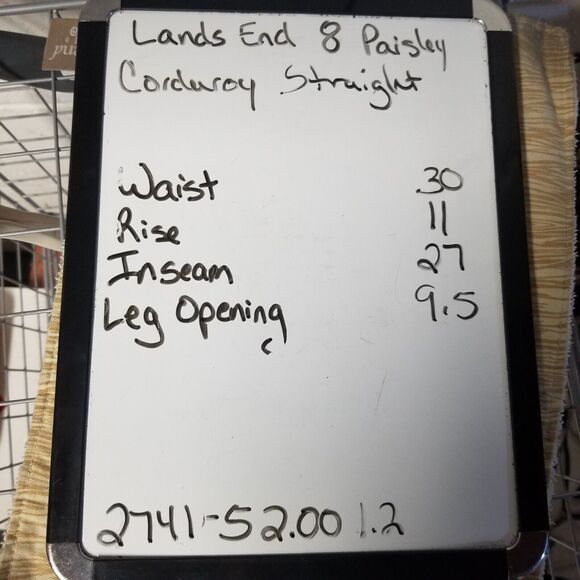 Lands End 8 Paisley
Corduroy Straight
Waist 30
Rise 11
Inseam 27
Leg Opening 9.5
2741-52.00 1.2